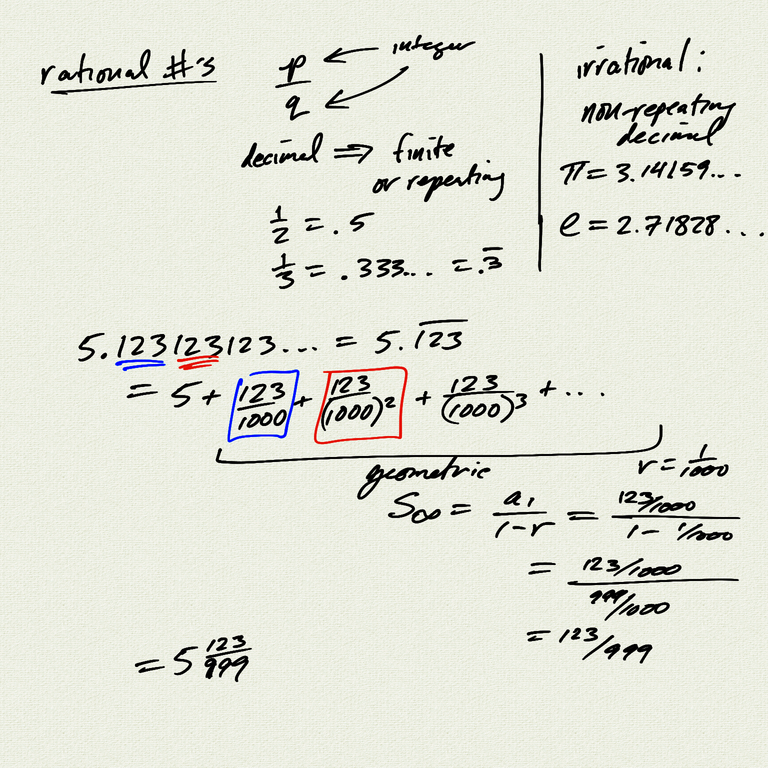 rational #'s
p/q ← integer
decimal ⇒ finite
or repeating
1/2 = .5
1/3 = .333... = .3̅
irrational:
non-repeating
decimal
π = 3.14159...
e = 2.71828...
5.123123123... = 5.1̅2̅3̅
= 5 + 123/1000 + 123/(1000)² + 123/(1000)³ + ...
geometric
r = 1/1000
S∞ = a₁/(1-r) = (123/1000)/(1 - 1/1000)
= (123/1000)/(999/1000)
= 123/999
= 5 123/999